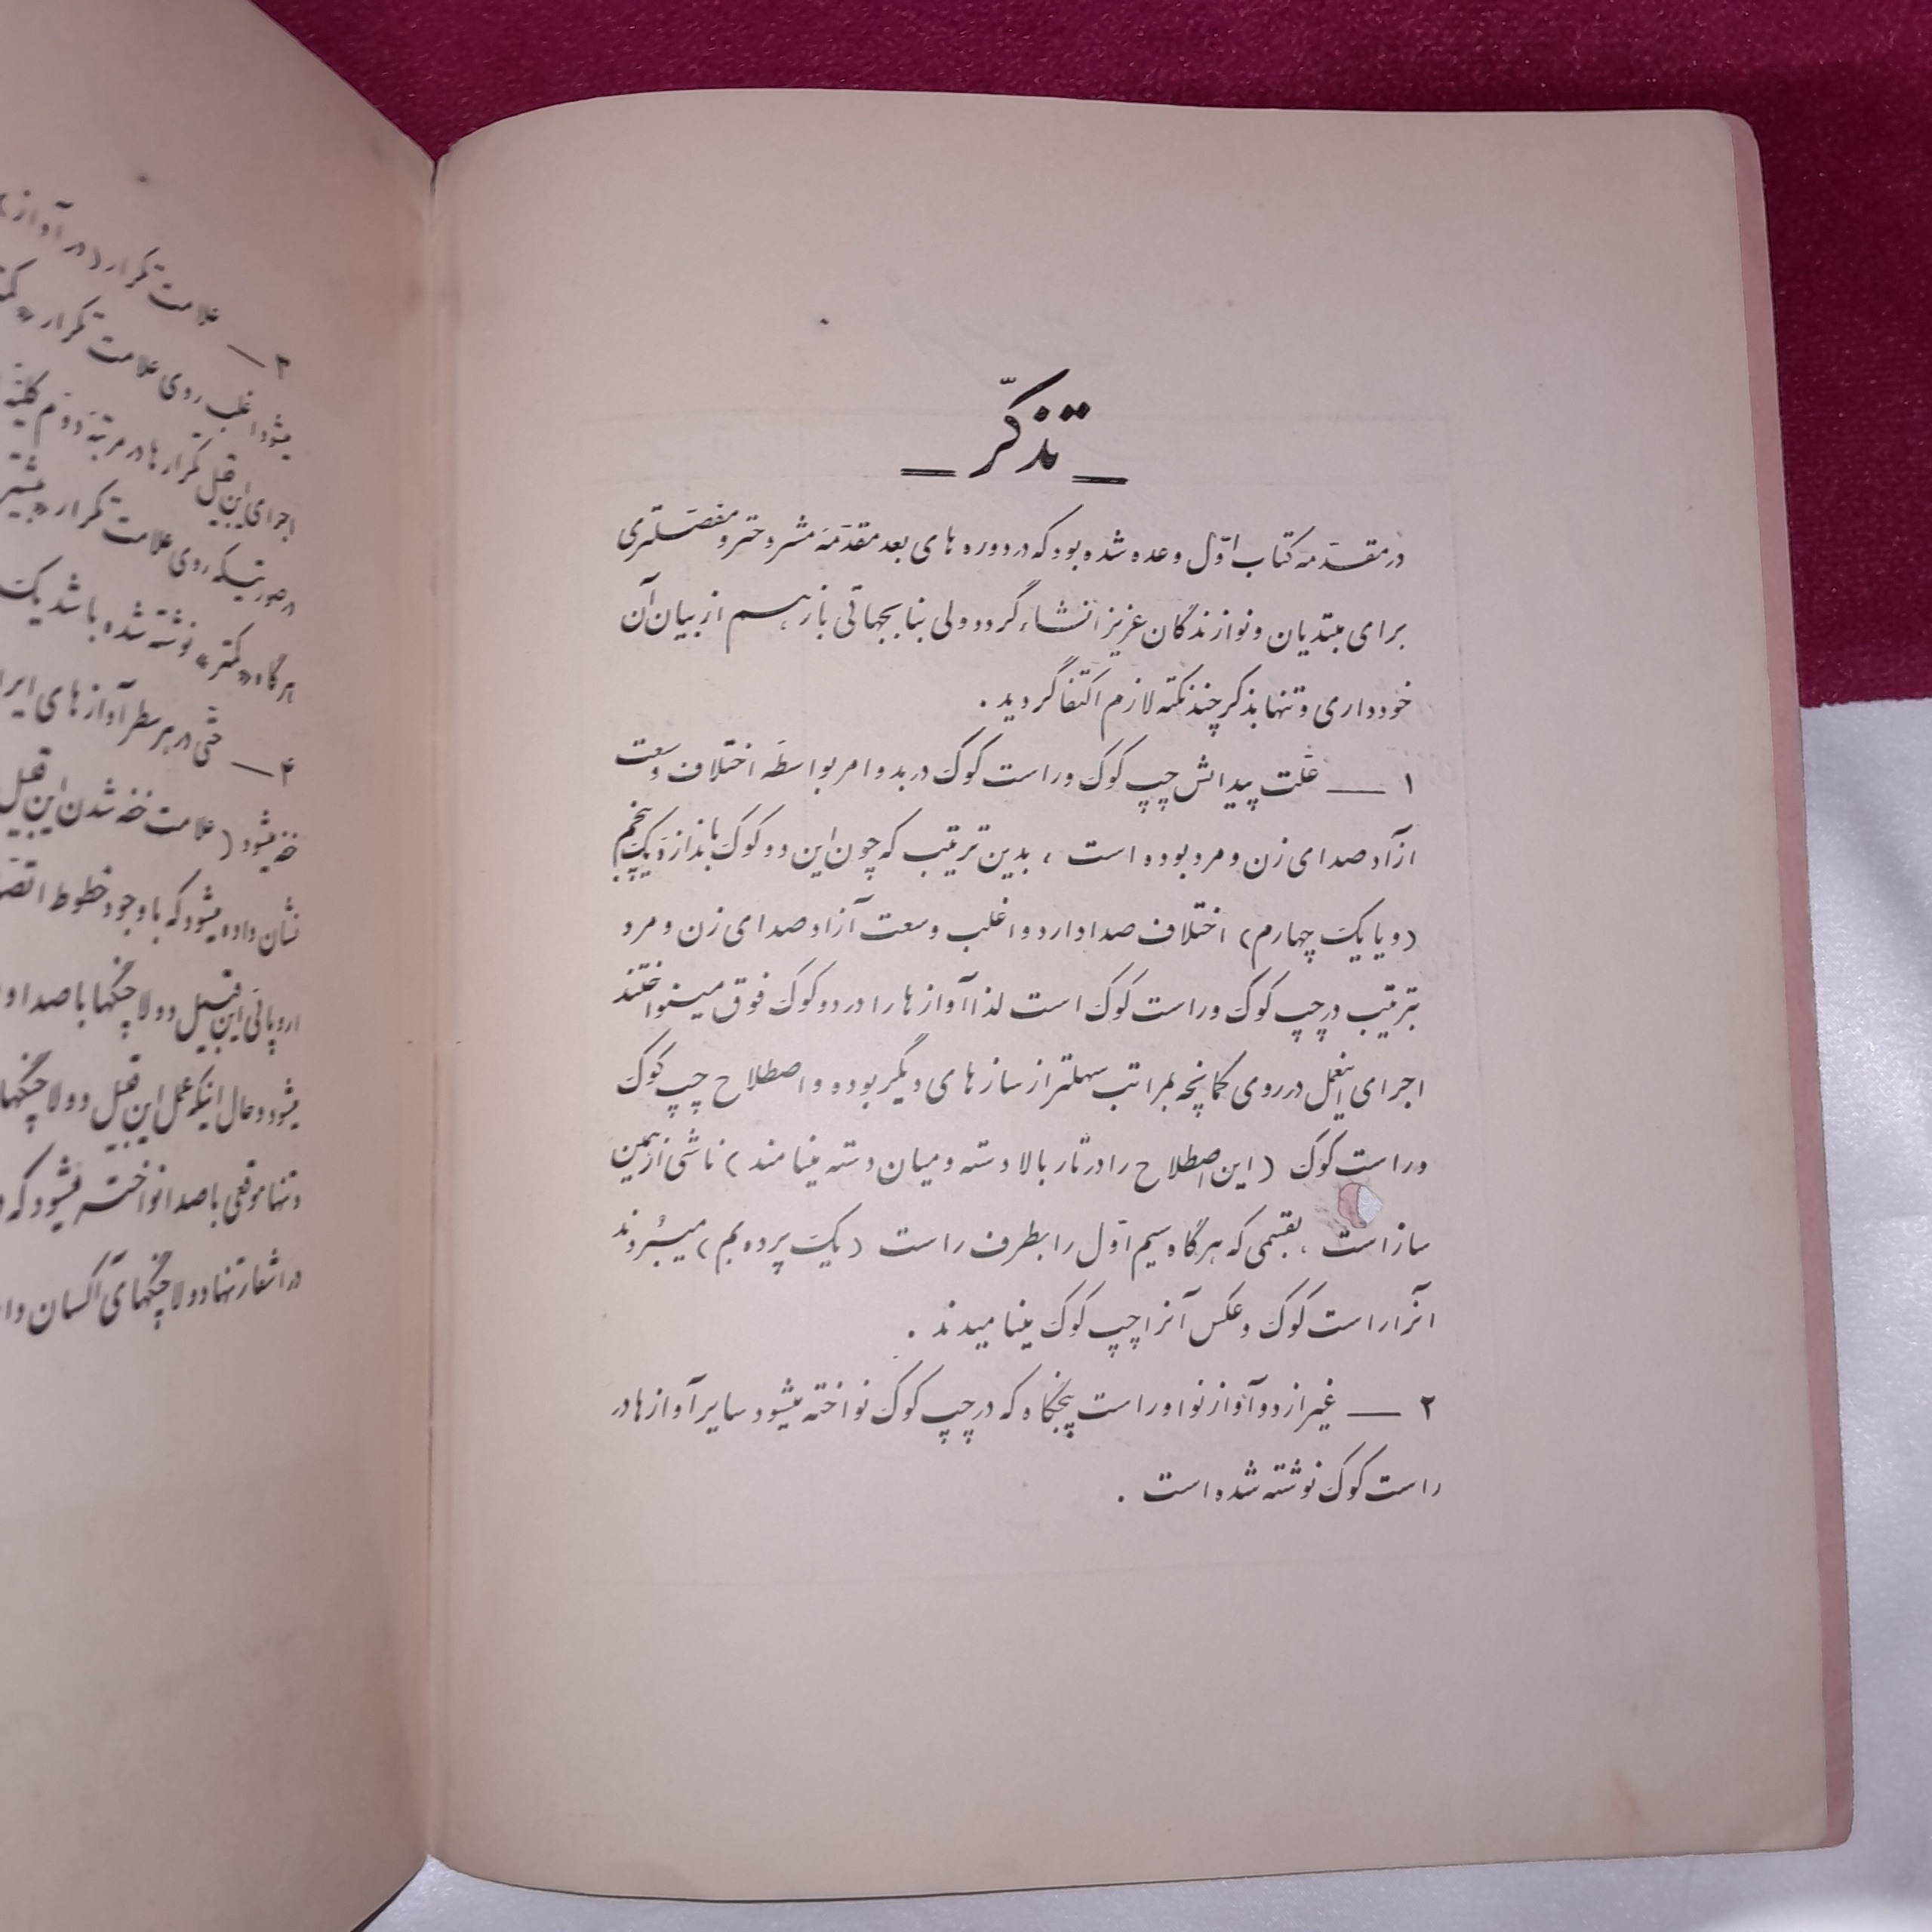 تذکّر
در مقدّمه کتاب اوّل وعده شده بود که در دوره های بعد مقدّمهٔ مشروحتر و مفصّلتری
برای مبتدیان و نوازندگان عزیز انشاء گردد ولی بنا بجهاتی باز هم از بیان آن
خودداری و تنها بذکر چند نکته لازم اکتفا گردید .
۱ — علّت پیدایش چپ کوک و راست کوک در بدو امر بواسطهٔ اختلاف وسعت
آزاد صدای زن و مرد بوده است ، بدین ترتیب که چون این دو کوک باندازهٔ یک پنجم
(و یا یک چهارم) اختلاف صدا دارد و اغلب وسعت آزاد صدای زن و مرد
بترتیب در چپ کوک و راست کوک است لذا آواز ها را در دو کوک فوق مینواختند
اجرای اینعمل در روی کمانچه بمراتب سهلتر از ساز های دیگر بوده و اصطلاح چپ کوک
و راست کوک (این اصطلاح را در تار بالا دسته و میان دسته مینامند) ناشی از همین
ساز است ، بقسمی که هرگاه سیم اوّل را بطرف راست (یک پرده بم) میبُردند
آنرا راست کوک و عکس آنرا چپ کوک مینامیدند .
۲ — غیر از دو آواز نوا و راست پنجگاه که در چپ کوک نواخته میشود سایر آوازها در
راست کوک نوشته شده است .
۳ — علامت تکرار (در آواز
میشود اغلب روی علامت تکرار «کمتر
اجرای این قبیل تکرار ها در مرتبهٔ دوّم کلیّهٔ
در صورتیکه روی علامت تکرار «بیشتر
هرگاه «کمتر» نوشته شده باشد یک
۴ — حتّی در هر سطر آواز های ایرا
خفه میشود (علامت خفه شدن این قبیل
نشان داده میشود که با وجود خطوط اتصا
اروپائی این قبیل دولا چنگها با صدا و
میشود و حال اینکه عمل این قبیل دولا چنگها
و تنها موقعی با صدا نواخته میشود که د
در اشعار تنها دولا چنگهای آکسان دا